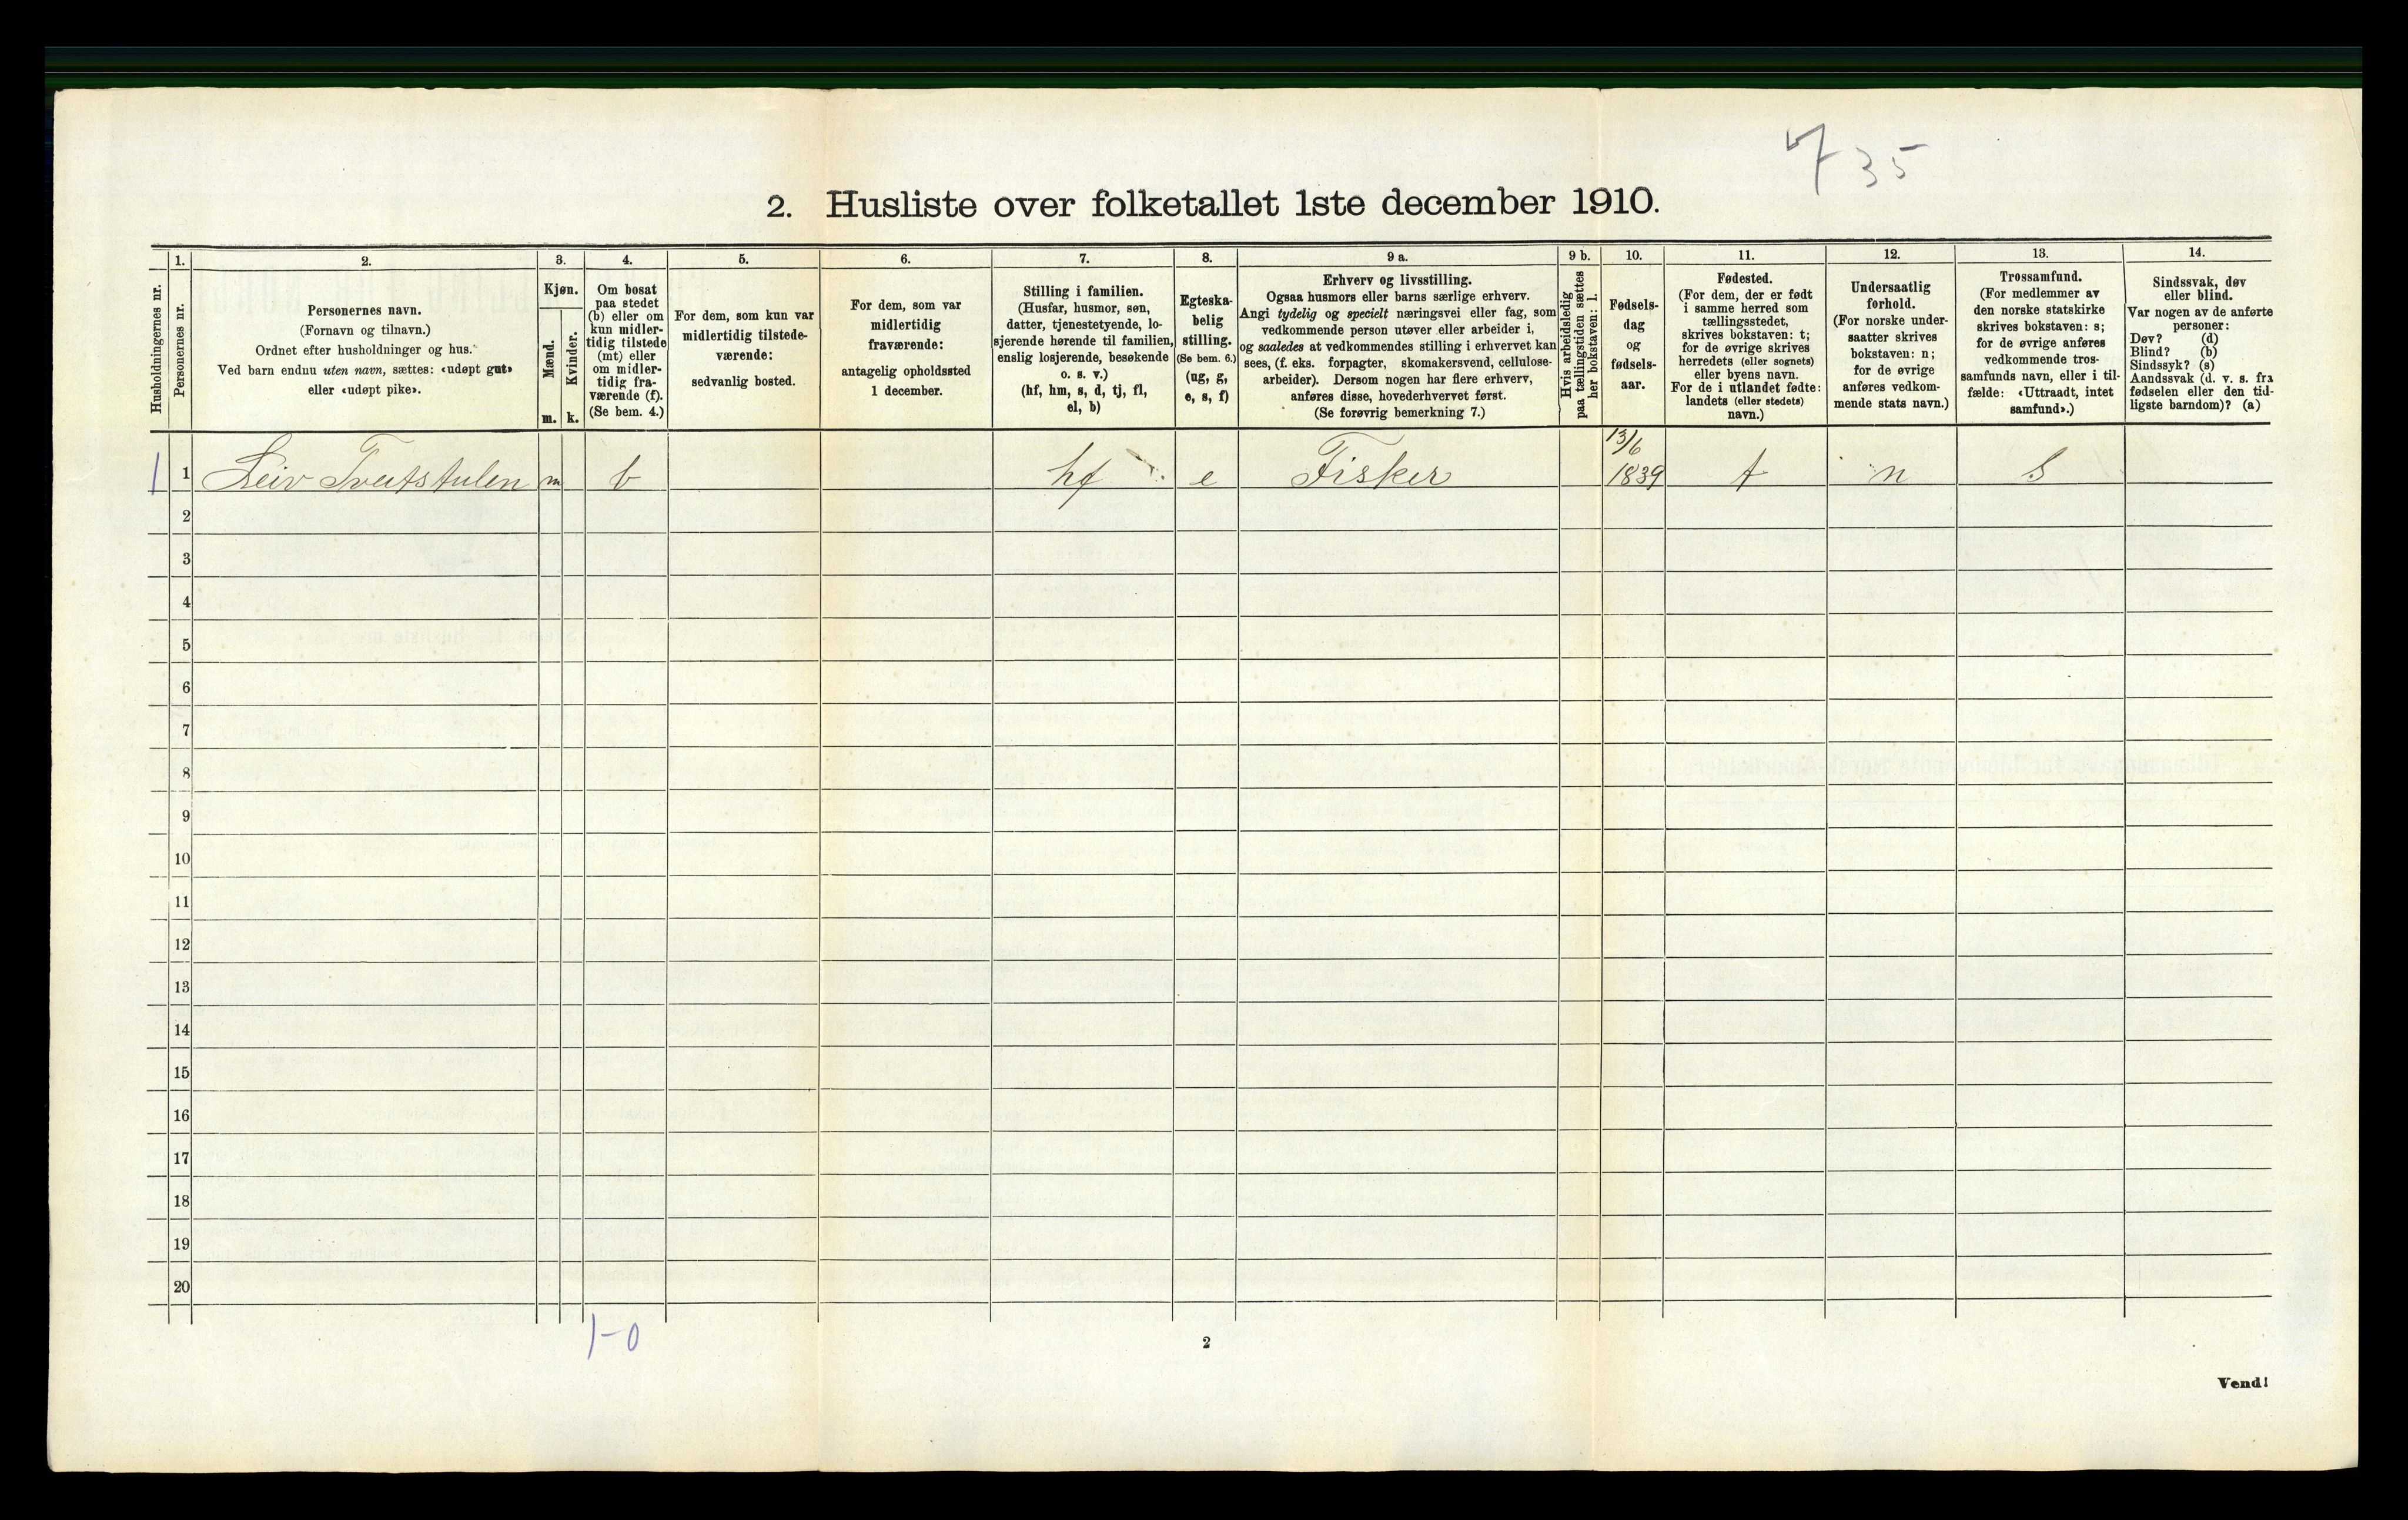 735
2. Husliste over folketallet 1ste december 1910.
Husholdningernes nr.
1.
Personernes nr.
2.
Personernes navn.
(Fornavn og tilnavn.)
Ordnet efter husholdninger og hus.
Ved barn endnu uten navn, sættes: «udøpt gut»
eller «udøpt pike».
3.
Kjøn.
Mænd.
Kvinder.
m. k.
4.
Om bosat
paa stedet
(b) eller om
kun midler-
tidig tilstede
(mt) eller
om midler-
tidig fra-
værende (f).
(Se bem. 4.)
5.
For dem, som kun var
midlertidig tilstede-
værende:
sedvanlig bosted.
6.
For dem, som var
midlertidig
fraværende:
antagelig opholdssted
1 december.
7.
Stilling i familien.
(Husfar, husmor, søn,
datter, tjenestetyende, lo-
sjerende hørende til familien,
enslig losjerende, besøkende
o. s. v.)
(hf, hm, s, d, tj, fl,
el, b)
8.
Egteska-
belig
stilling.
(Se bem. 6.)
(ug, g,
e, s, f)
9 a.
Erhverv og livsstilling.
Ogsaa husmors eller barns særlige erhverv.
Angi tydelig og specielt næringsvei eller fag, som
vedkommende person utøver eller arbeider i,
og saaledes at vedkommendes stilling i erhvervet kan
sees, (f. eks. forpagter, skomakersvend, cellulose-
arbeider). Dersom nogen har flere erhverv,
anføres disse, hovederhvervet først.
(Se forøvrig bemerkning 7.)
9 b.
Hvis arbeidsledig
paa tællingstiden sættes
her bokstaven: l.
10.
Fødsels-
dag
og
fødsels-
aar.
11.
Fødested.
(For dem, der er født
i samme herred som
tællingsstedet,
skrives bokstaven: t;
for de øvrige skrives
herredets (eller sognets)
eller byens navn.
For de i utlandet fødte:
landets (eller stedets)
navn.)
12.
Undersaatlig
forhold.
(For norske under-
saatter skrives
bokstaven: n;
for de øvrige
anføres vedkom-
mende stats navn.)
13.
Trossamfund.
(For medlemmer av
den norske statskirke
skrives bokstaven: s;
for de øvrige anføres
vedkommende tros-
samfunds navn, eller i til-
fælde: «Uttraadt, intet
samfund».)
14.
Sindssvak, døv
eller blind.
Var nogen av de anførte
personer:
Døv? (d)
Blind? (b)
Sindssyk? (s)
Aandssvak (d. v. s. fra
fødselen eller den tid-
ligste barndom)? (a)
1 1 Leiv Tveitstulen m b hf e Fisker 13/6 1839 t n S
2
3
4
5
6
7
8
9
10
11
12
13
14
15
16
17
18
19
20
1-0
2
Vend!